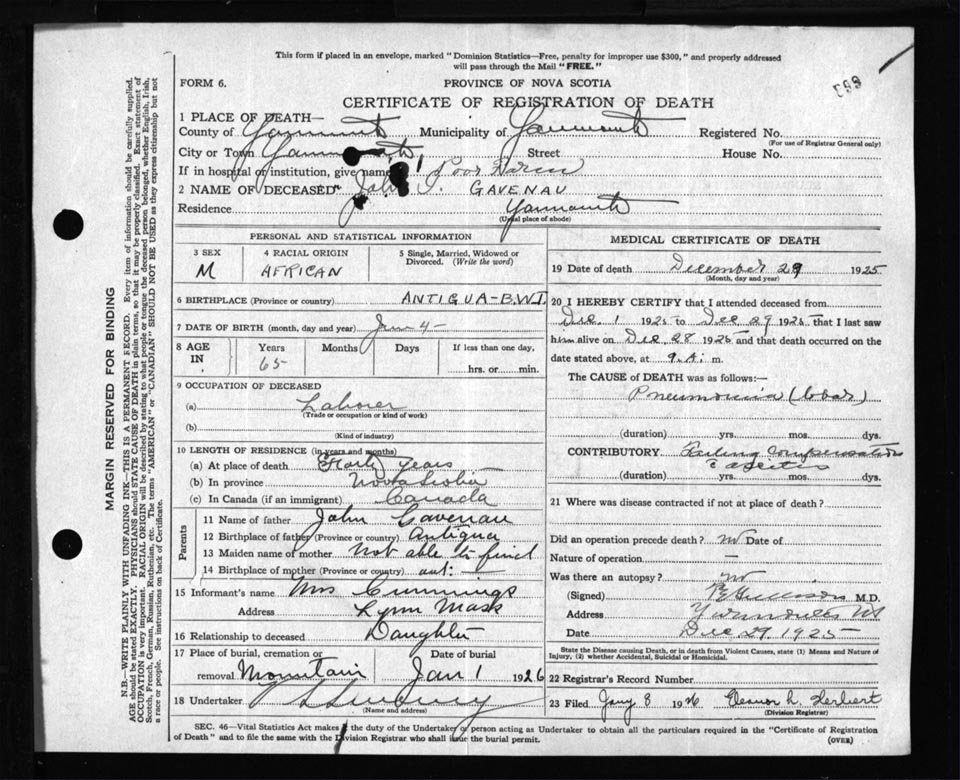 This form if placed in an envelope, marked "Dominion Statistics—Free, penalty for improper use $300," and properly addressed
will pass through the Mail "FREE."
FORM 6.
PROVINCE OF NOVA SCOTIA
CERTIFICATE OF REGISTRATION OF DEATH
1 PLACE OF DEATH—
County of Yarmouth Municipality of Yarmouth Registered No.
(For use of Registrar General only)
City or Town Yarmouth Street House No.
If in hospital or institution, give name Poor Farm
2 NAME OF DECEASED John GAVENAU
Residence Yarmouth
(Usual place of abode)
PERSONAL AND STATISTICAL INFORMATION
3 SEX
M
4 RACIAL ORIGIN
AFRICAN
5 Single, Married, Widowed or
Divorced. (Write the word)
6 BIRTHPLACE (Province or country) ANTIGUA-B.W.I.
7 DATE OF BIRTH (month, day and year) Jan 4-
8 AGE
IN
Years
65
Months
Days
If less than one day,
hrs. or min.
9 OCCUPATION OF DECEASED
(a) Laborer
(Trade or occupation or kind of work)
(b)
(Kind of industry)
10 LENGTH OF RESIDENCE (in years and months)
(a) At place of death Forty years
(b) In province Nova Scotia
(c) In Canada (if an immigrant) Canada
Parents
11 Name of father John Cavenau
12 Birthplace of father (Province or country) Antigua
13 Maiden name of mother Not able to find
14 Birthplace of mother (Province or country) ant: —
15 Informant's name Mrs Cummings
Address Lynn Mass
16 Relationship to deceased Daughter
17 Place of burial, cremation or
removal Mountain
Date of burial
Jan 1 1926
18 Undertaker
(Name and address)
MEDICAL CERTIFICATE OF DEATH
19 Date of death December 29 1925
(Month, day and year)
20 I HEREBY CERTIFY that I attended deceased from
Dec. 1 1925 to Dec 29 1925 that I last saw
him alive on Dec. 28 1925 and that death occurred on the
date stated above, at 9. A. m.
The CAUSE of DEATH was as follows:—
Pneumonia (lobar)
(duration) yrs. mos. dys.
CONTRIBUTORY Failing Compensation
c ascites
(duration) yrs. mos. dys.
21 Where was disease contracted if not at place of death?
Did an operation precede death? no Date of
Nature of operation —
Was there an autopsy? no
(Signed) M.D.
Address Yarmouth NS
Date Dec 29. 1925
State the Disease causing Death, or in death from Violent Causes, state (1) Means and Nature of
Injury, (2) whether Accidental, Suicidal or Homicidal.
22 Registrar's Record Number
23 Filed Jany 8 1926 Eleanor L. Herbert
(Division Registrar)
SEC. 46—Vital Statistics Act makes it the duty of the Undertaker or person acting as Undertaker to obtain all the particulars required in the "Certificate of Registration
of Death" and to file the same with the Division Registrar who shall issue the burial permit.
(OVER)
MARGIN RESERVED FOR BINDING
N.B.—WRITE PLAINLY WITH UNFADING INK—THIS IS A PERMANENT RECORD. Every item of information should be carefully supplied.
AGE should be stated EXACTLY. PHYSICIANS should STATE CAUSE OF DEATH in plain terms, so that it may be properly classified. Exact statement of
OCCUPATION is very important. RACIAL ORIGIN will be described by stating to what people or tongue the deceased person belonged, whether English, Irish,
Scotch, French, German, Russian, Ruthenian, etc. The terms "AMERICAN" or "CANADIAN" SHOULD NOT BE USED as they express citizenship but not
a race or people. See instructions on back of Certificate.